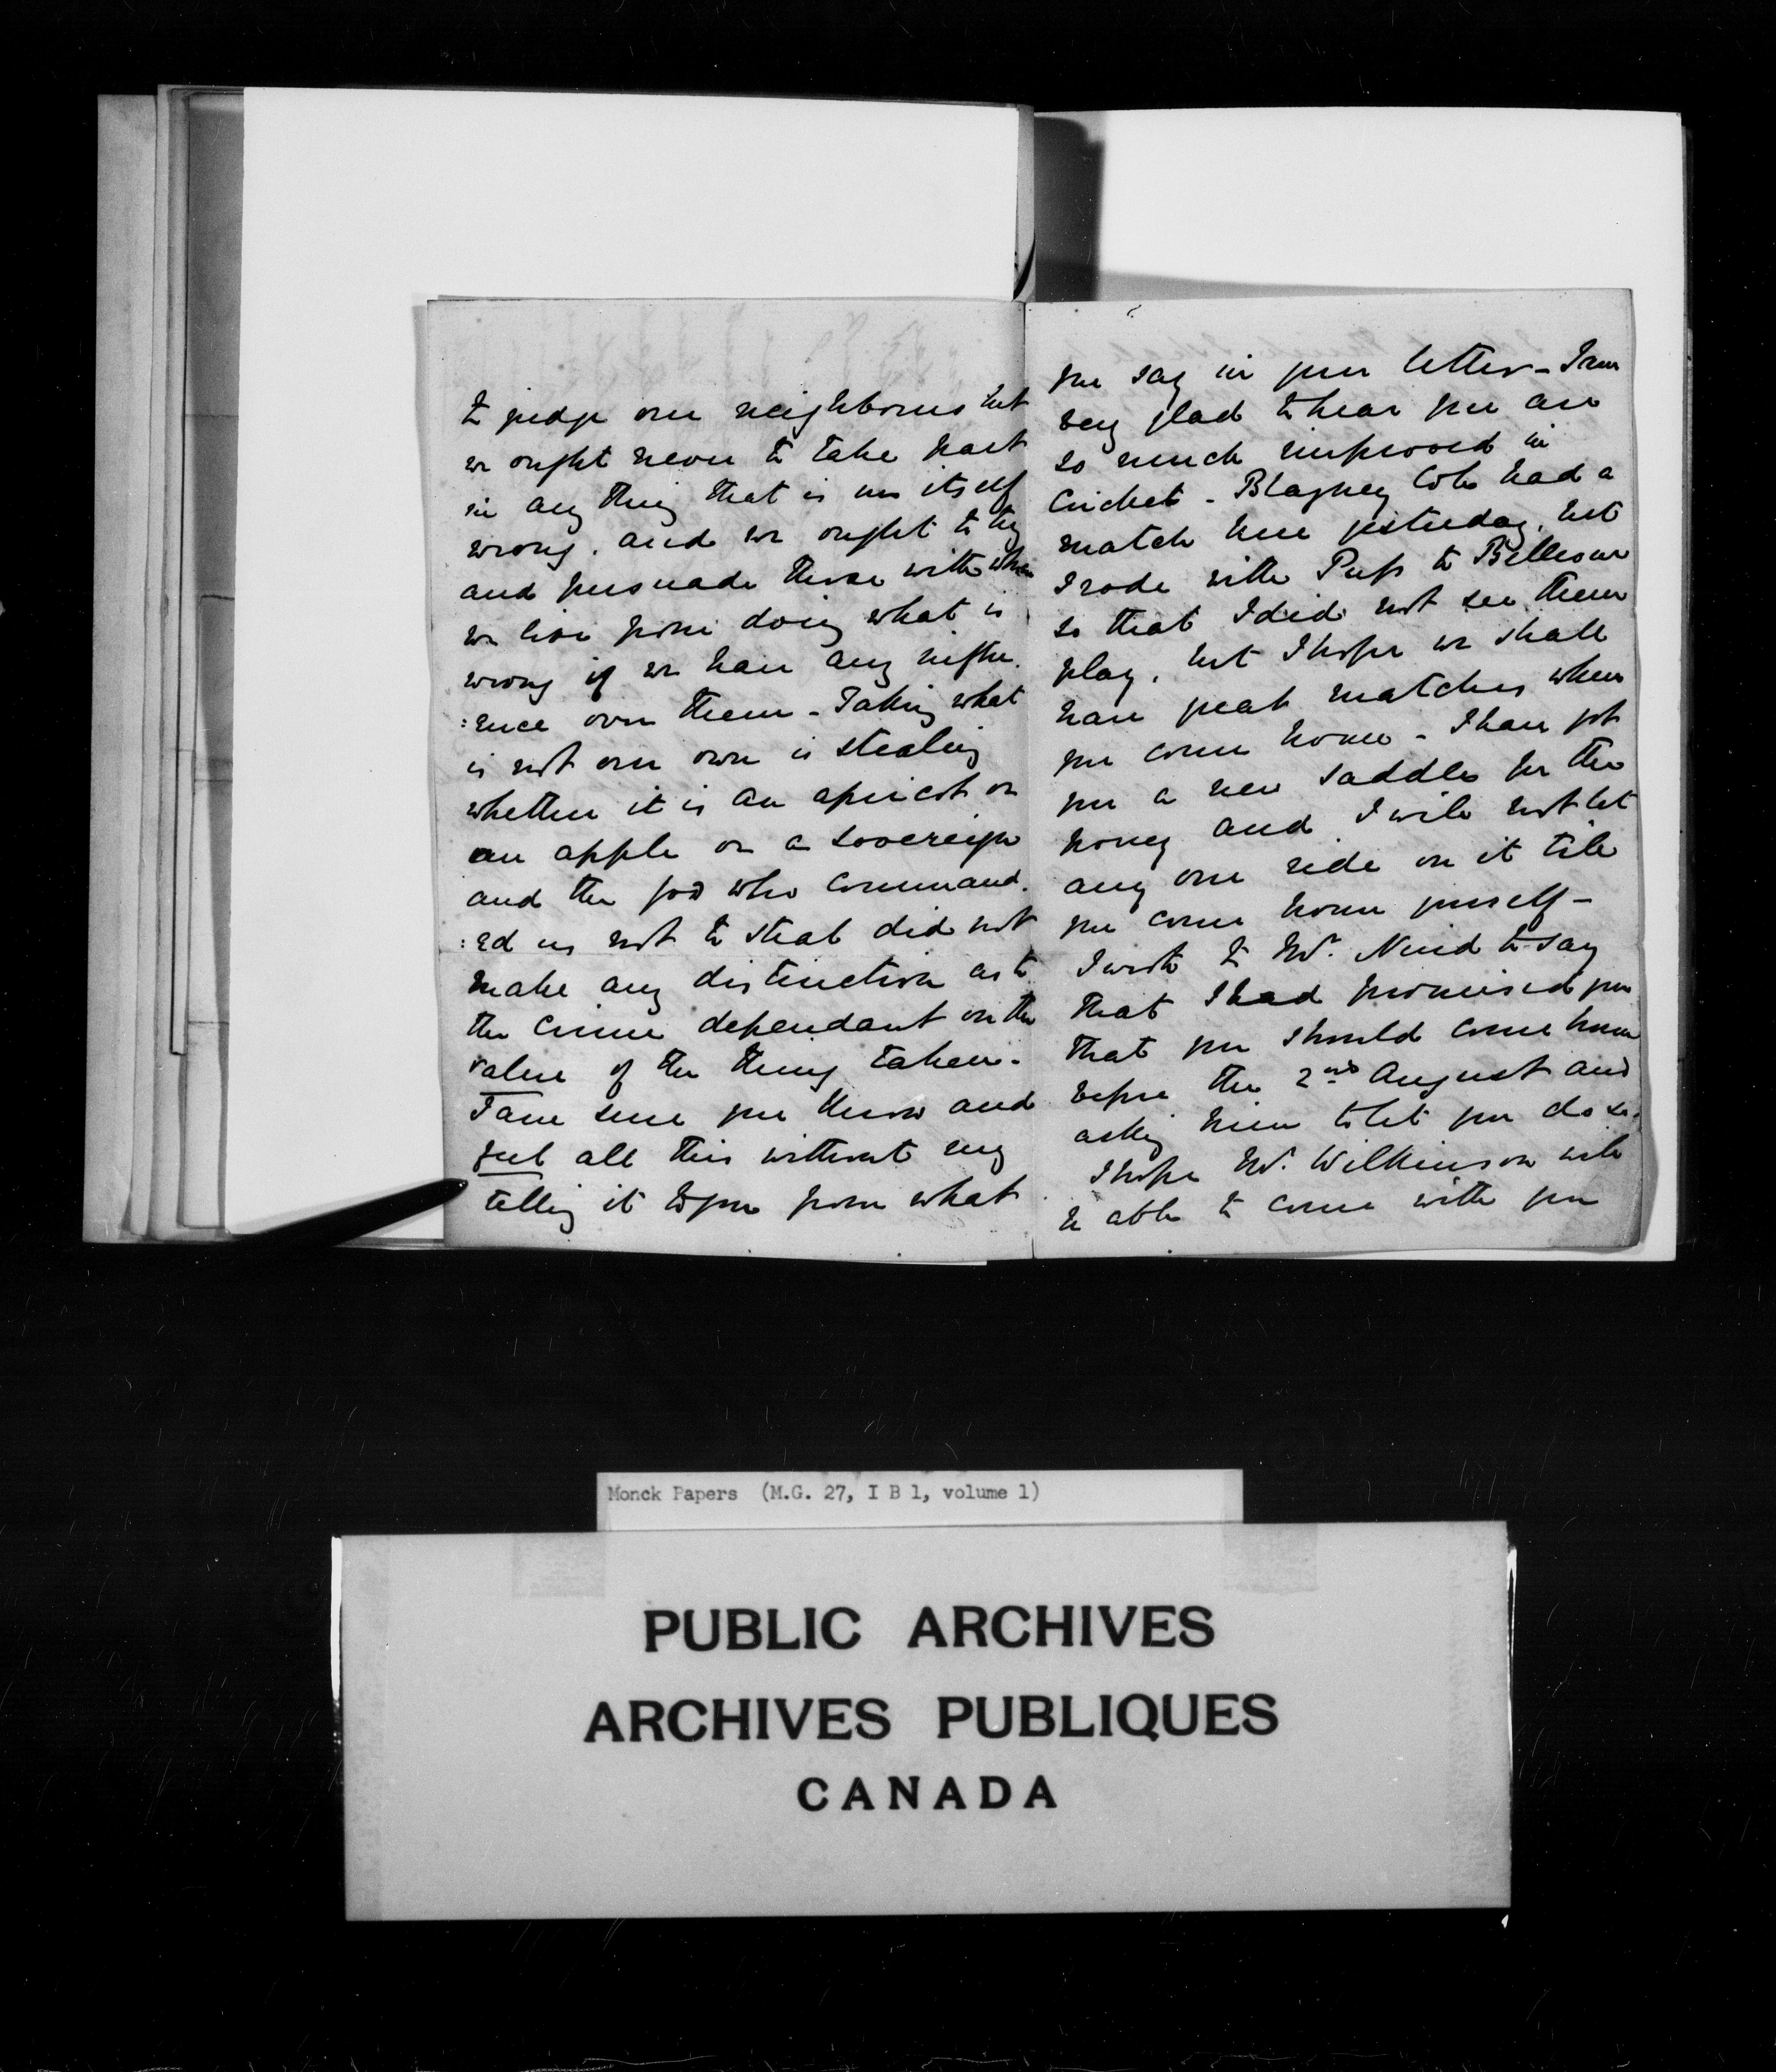 to judge our neighbours but
we ought never to take part
in any thing that is in itself
wrong. and we ought to try
and persuade those with whom
we live from doing what is
wrong if we have any influ.
:ence over them - Taking what
is not our own is stealing
whether it is an apricot or
an apple or a sovereign
and the God who command.
:ed us not to steal did not
make any distinction as to
the crime dependant on the
value of the thing taken.
I am sure you know and
feel all this without my
telling it to you from what
you say in your letter - I am
very glad to hear you are
so much improved in
Cricket - Blayney Cole had a
match here yesterday. but
I rode with Puss to Bellevue
so that I did not see them
play. but I hope we shall
have great matches when
you come home - I have got
you a new saddle for the
poney and I will not let
any one ride on it till
you come home yourself -
I wrote to Mr. Nind to say
that I had promised you
that you should come home
before the 2nd August and
asking him to let you do so.
I hope Mr. Wilkinson will
be able to come with you
Monck Papers (M.G. 27, I B 1, volume 1)
PUBLIC ARCHIVES
ARCHIVES PUBLIQUES
CANADA